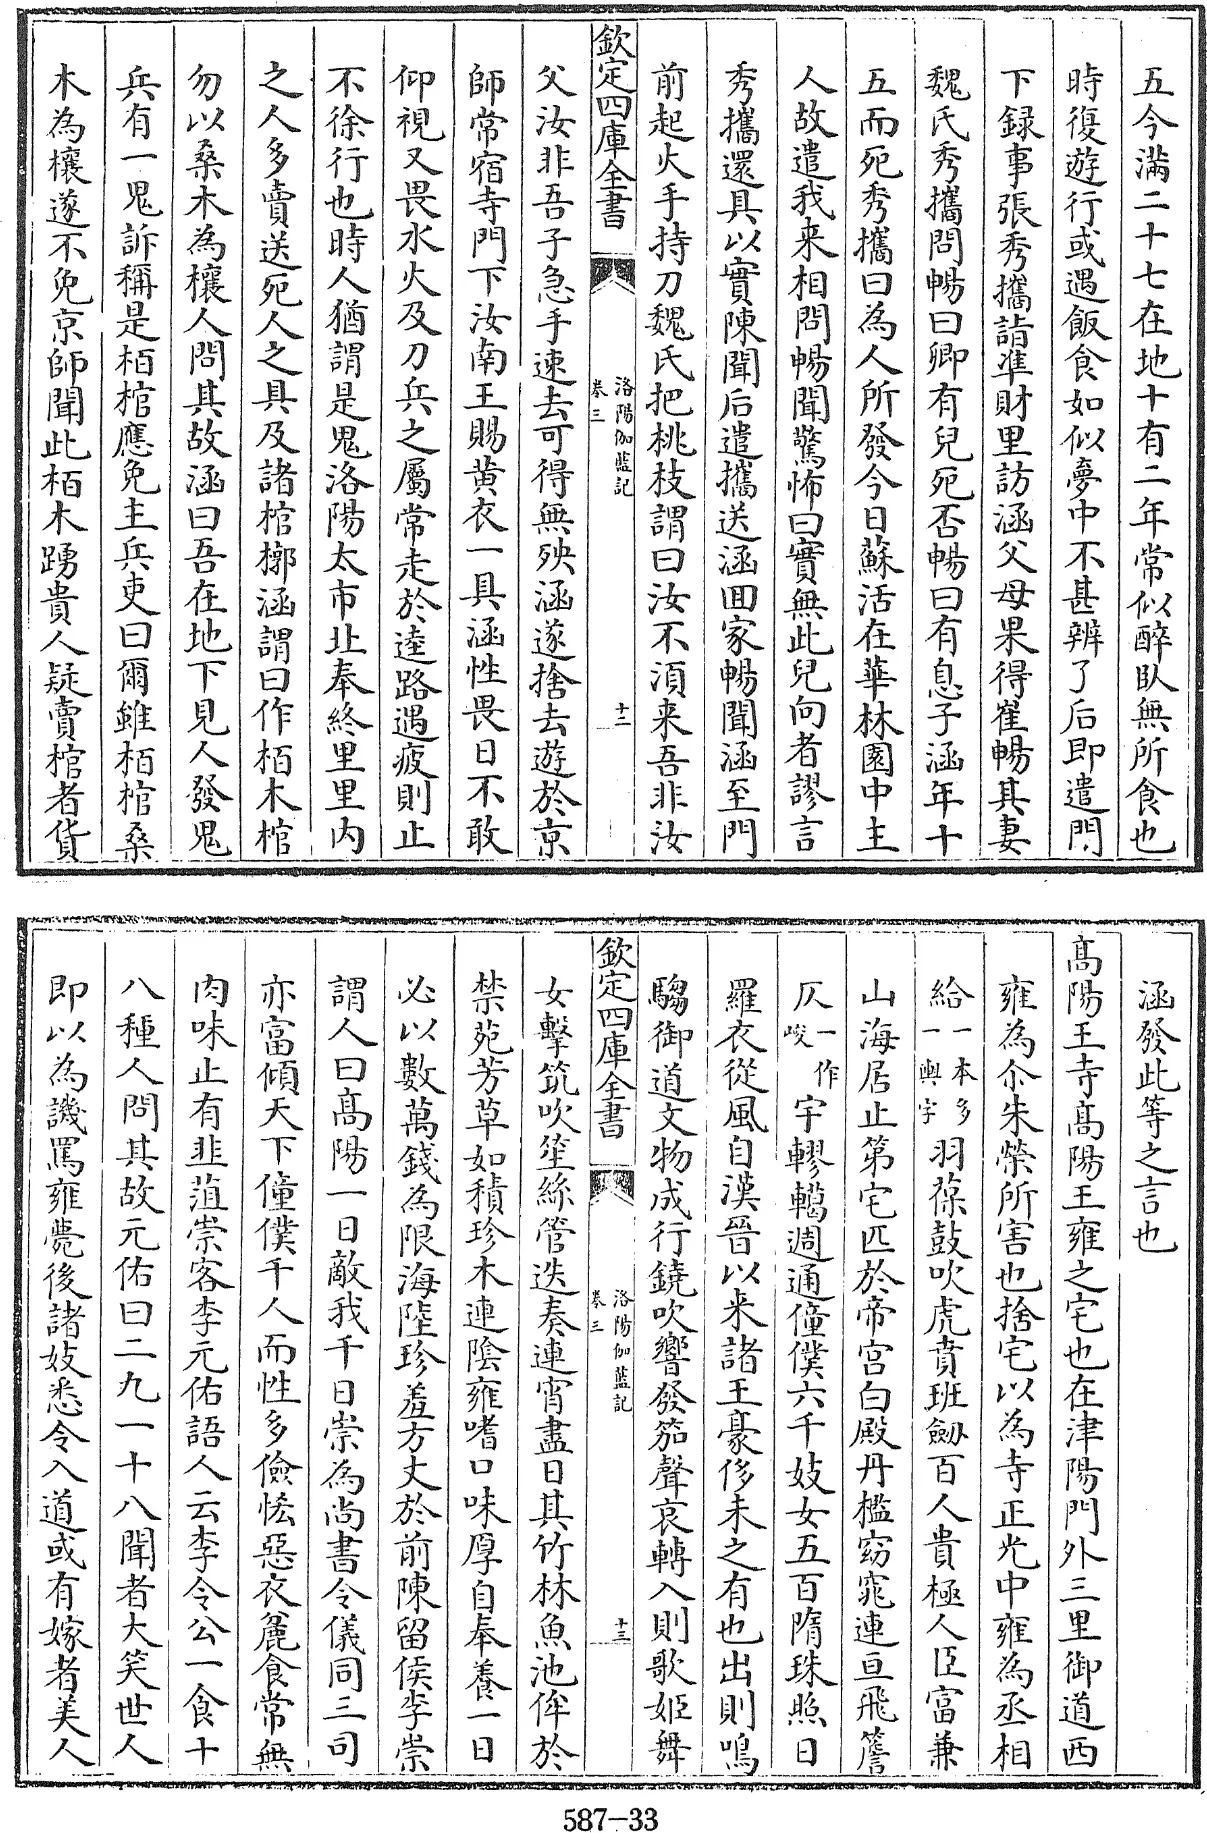 五今滿二十七在地十有二年常似醉臥無所食也
時復遊行或遇飯食如似夢中不甚辨了后即遣門
下録事張秀攜詣準財里訪涵父母果得崔暢其妻
魏氏秀攜問暢曰卿有兒死否暢曰有息子涵年十
五而死秀攜曰為人所發今日蘇活在華林園中主
人故遣我来相問暢聞驚怖曰實無此兒向者謬言
秀攜還具以實陳聞后遣攜送涵回家暢聞涵至門
前起火手持刀魏氏把桃枝謂曰汝不須来吾非汝
欽定四庫全書
洛陽伽藍記
卷三
十二
父汝非吾子急手速去可得無殃涵遂捨去遊於京
師常宿寺門下汝南王賜黄衣一具涵性畏日不敢
仰視又畏水火及刀兵之屬常走於逵路遇疲則止
不徐行也時人猶謂是鬼洛陽太市北奉終里里内
之人多賣送死人之具及諸棺槨涵謂曰作栢木棺
勿以桑木為欀人問其故涵曰吾在地下見人發鬼
兵有一鬼訴稱是栢棺應免主兵吏曰爾雖栢棺桑
木為欀遂不免京師聞此栢木踴貴人疑賣棺者貨
涵發此等之言也
髙陽王寺髙陽王雍之宅也在津陽門外三里御道西
雍為尒朱榮所害也捨宅以為寺正光中雍為丞相
給一本多一輿字羽葆鼓吹虎賁班劒百人貴極人臣富兼
山海居止第宅匹於帝宫白殿丹檻窈窕連亘飛簷
仄一作峻宇轇轕週通僮僕六千妓女五百隋珠照日
羅衣從風自漢晉以来諸王豪侈未之有也出則鳴
騶御道文物成行鐃吹響發笳聲哀轉入則歌姬舞
欽定四庫全書
洛陽伽藍記
卷三
十三
女擊筑吹笙絲管迭奏連宵盡日其竹林魚池侔於
禁苑芳草如積珍木連陰雍嗜口味厚自奉養一日
必以數萬錢為限海陸珍羞方丈於前陳留侯李崇
謂人曰髙陽一日敵我千日崇為尚書令儀同三司
亦富傾天下僮僕千人而性多儉恡惡衣麄食常無
肉味止有韭菹崇客李元佑語人云李令公一食十
八種人問其故元佑曰二九一十八聞者大笑世人
即以為譏罵雍薨後諸妓悉令入道或有嫁者美人
587-33